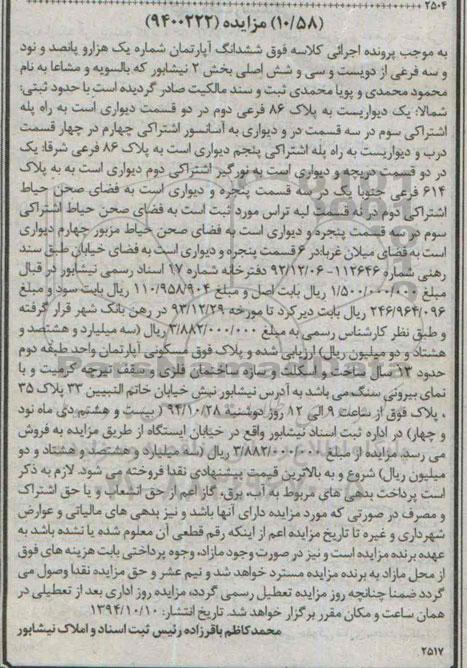 ۲۵۰۴
(۱۰/۵۸) مزایده (۹۴۰۰۲۲۲)
به موجب پرونده اجرائی کلاسه فوق ششدانگ آپارتمان شماره یک هزارو پانصد و نود
و سه فرعی از دویست و سی و شش اصلی بخش ۲ نیشابور که بالسویه و مشاعا به نام
محمود محمدی و پویا محمدی ثبت و سند مالکیت صادر گردیده است با حدود ثبتی:
شمالا: یک دیواریست به پلاک ۸۶ فرعی دوم در دو قسمت دیواری است به راه پله
اشتراکی سوم در سه قسمت در و دیواری به آسانسور اشتراکی چهارم در چهار قسمت
درب و دیواریست به راه پله اشتراکی پنجم دیواری است به پلاک ۸۶ فرعی شرقا: یک
در دو قسمت دریچه و دیواری است به نورگیر اشتراکی دوم دیواری است به به پلاک
۶۱۴ فرعی جنوبا یک در سه قسمت پنجره و دیواری است به فضای صحن حیاط
اشتراکی دوم در نه قسمت لبه تراس مورد ثبت است به فضای صحن حیاط اشتراکی
سوم در سه قسمت پنجره و دیواری است به فضای صحن حیاط مزبور چهارم دیواری
است به فضای میلان غربا: در ۶ قسمت پنجره و دیواری است به فضای خیابان طبق سند
رهنی شماره ۱۱۲۶۴۶- ۹۲/۱۲/۰۶ دفترخانه شماره ۱۷ اسناد رسمی نیشابور در قبال
مبلغ ۱/۵۰۰/۰۰۰/۰۰۰ ریال بابت اصل و مبلغ ۱۱۰/۹۵۸/۹۰۴ ریال بابت سود و مبلغ
۲۴۶/۹۶۴/۰۹۶ ریال بابت دیرکرد تا مورخه ۹۳/۱۲/۲۹ در رهن بانک شهر قرار گرفته
و طبق نظر کارشناس رسمی به مبلغ ۳/۸۸۲/۰۰۰/۰۰۰ ریال (سه میلیارد و هشتصد و
هشتاد و دو میلیون ریال) ارزیابی شده و پلاک فوق مسکونی آپارتمان واحد طبقه دوم
حدود ۱۳ سال ساخت و اسکلت و سازه ساختمان فلزی و سقف تیرچه کرمیت و با
نمای بیرونی سنگ می باشد به آدرس نیشابور نبش خیابان خاتم النبیین ۳۳ پلاک ۳۵
، پلاک فوق از ساعت ۹ الی ۱۲ روز دوشنبه ۹۴/۱۰/۲۸ ( بیست و هشتم دی ماه نود
و چهار) در اداره ثبت اسناد نیشابور واقع در خیابان ایستگاه از طریق مزایده به فروش
می رسد. مزایده از مبلغ ۳/۸۸۲/۰۰۰/۰۰۰ ریال (سه میلیارد و هشتصد و هشتاد و دو
میلیون ریال) شروع و به بالاترین قیمت پیشنهادی نقدا فروخته می شود. لازم به ذکر
است پرداخت بدهی های مربوط به آب، برق، گاز اعم از حق انشعاب و یا حق اشتراک
و مصرف در صورتی که مورد مزایده دارای آنها باشد و نیز بدهی های مالیاتی و عوارض
شهرداری و غیره تا تاریخ مزایده اعم از اینکه رقم قطعی آن معلوم شده یا نشده باشد به
عهده برنده مزایده است و نیز در صورت وجود مازاد، وجوه پرداختی بابت هزینه های فوق
از محل مازاد به برنده مزایده مسترد خواهد شد و نیم عشر و حق مزایده نقدا وصول می
گردد ضمنا چنانچه روز مزایده تعطیل رسمی گردد، مزایده روز اداری بعد از تعطیلی در
همان ساعت و مکان مقرر برگزار خواهد شد. تاریخ انتشار: ۱۳۹۴/۱۰/۱۰
محمدکاظم باقرزاده رئیس ثبت اسناد و املاک نیشابور
۲۵۱۷